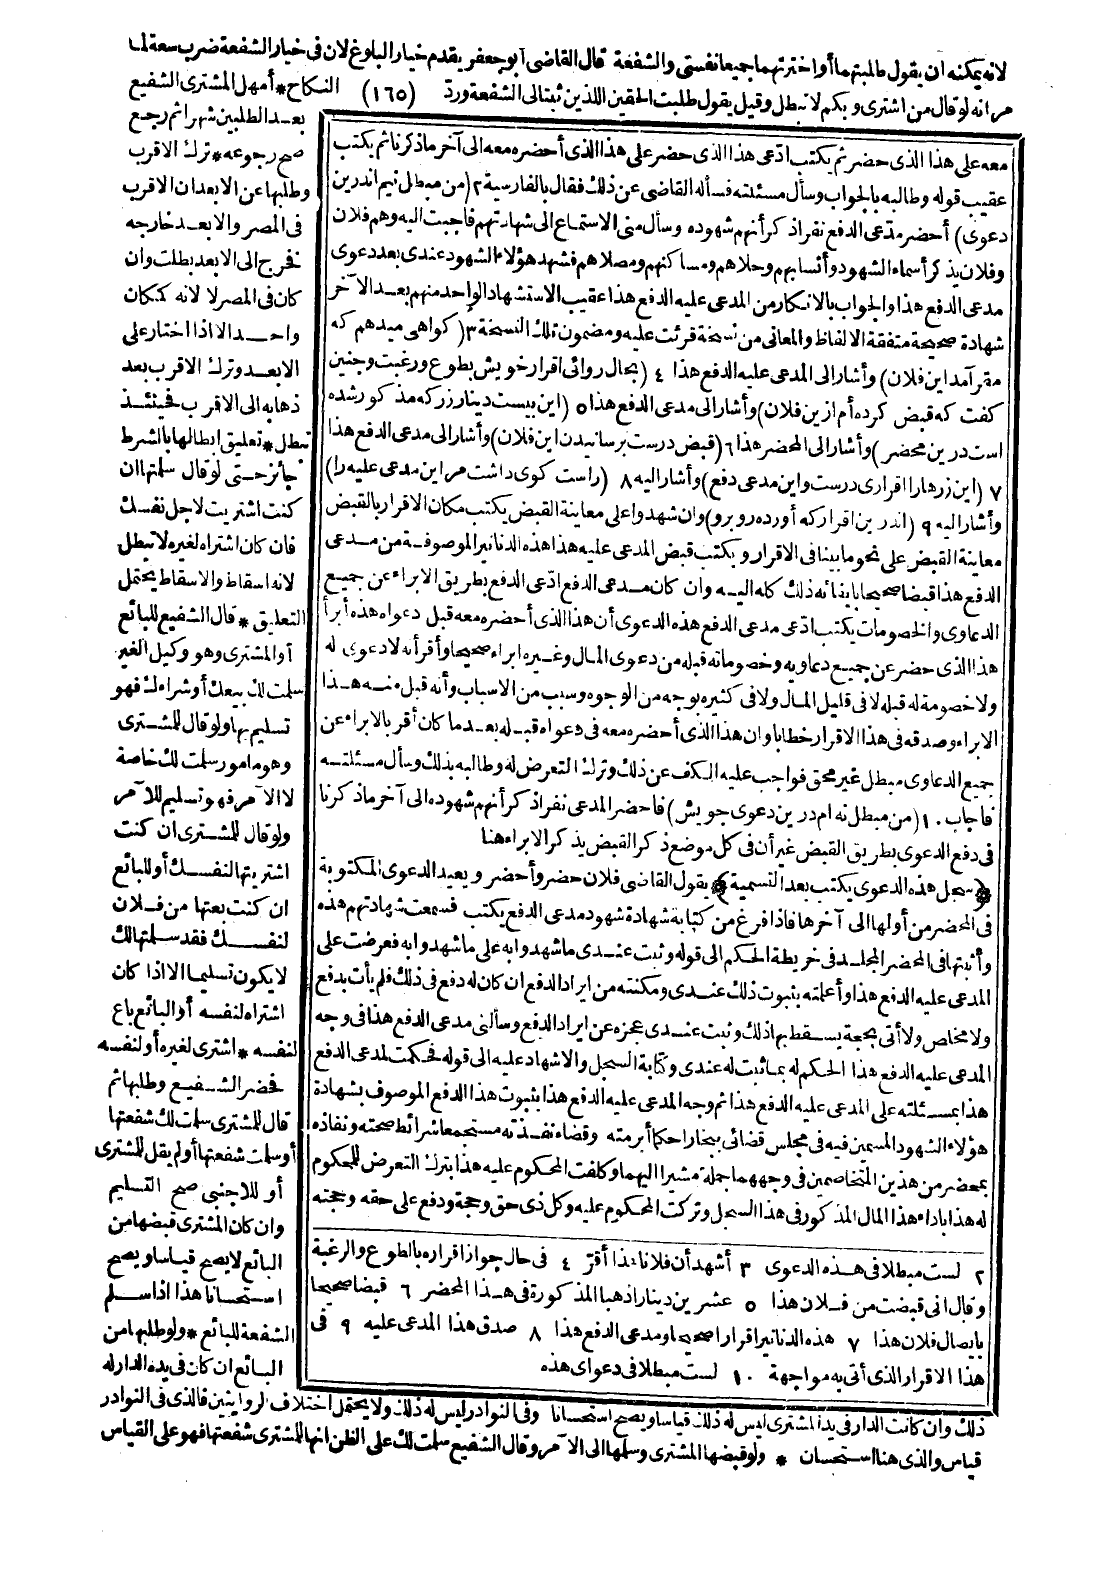 لانه يمكنه ان يقول طلبتهما أو اخترتهما جميعا نفسى والشفعة قال القاضى أبو جعفر يقدم خيار البلوغ لان فى خيار الشفعة ضرب سعة لما
مر انه لو قال من اشترى وبكم لا تبطل وقيل يقول طلبت الحقين اللذين ثبتا لى الشفعة ورد (١٦٥) النكاح * أمهل المشترى الشفيع
بعد الطلبين شهرا ثم رجع
صح رجوعه * ترك الاقرب
وطلبها عن الابعد ان الاقرب
فى المصر والابعد خارجه
فخرج الى الابعد بطلت وان
كان فى المصر لا لانه كمكان
واحد الا اذا اختار على
الابعد وترك الاقرب بعد
ذهابه الى الاقرب فحينئذ
تبطل * تعليق ابطالها بالشرط
جائز حتى لو قال سلمتها ان
كنت اشتريت لاجل نفسك
فان كان اشتراه لغيره لا تبطل
لانه اسقاط والاسقاط يحتمل
التعليق * قال الشفيع للبائع
أو المشترى وهو وكيل الغير
سلمت لك بيعك أو شراءك فهو
تسليم بها ولو قال للمشترى
وهو مأمور سلمت لك خاصة
لا الآمر فهو تسليم للآمر
ولو قال للمشترى ان كنت
اشتريتها لنفسك أو للبائع
ان كنت بعتها من فلان
لنفسك فقد سلمتها لك
لا يكون تسليما الا اذا كان
اشتراه لنفسه أو البائع باع
لنفسه * اشترى لغيره أو لنفسه
فحضر الشفيع وطلبها ثم
قال للمشترى سلمت لك شفعتها
أو سلمت شفعتها أو لم يقل للمشترى
أو للاجنبى صح التسليم
وان كان المشترى قبضها من
البائع لا يصح قياسا ويصح
استحسانا هذا اذا سلم
الشفعة للبائع * ولو طلبها من
البائع ان كان فى يده الدار له
معه على هذا الذى حضر ثم يكتب ادّعى هذا الذى حضر على هذا الذى أحضره معه الى آخر ما ذكرنا ثم يكتب
عقيب قوله وطالبه بالجواب وسأل مسئلته فسأله القاضى عن ذلك فقال بالفارسية ٢ (من مبطل نيم اندرين
دعوى) أحضر مدّعى الدفع نفرا ذكر أنهم شهوده وسأل منى الاستماع الى شهادتهم فاجبت اليه وهم فلان
وفلان يذكر أسماء الشهود وأنسابهم وحلاهم ومساكنهم ومصلاهم فشهد هؤلاء الشهود عندى بعد دعوى
مدعى الدفع هذا والجواب بالانكار من المدعى عليه الدفع هذا عقيب الاستشهاد الواحد منهم بعد الآخر
شهادة صحيحة متفقة الالفاظ والمعانى من نسخة قرئت عليه ومضمون تلك النسخة ٣ (كواهى ميدهم كه
مقر آمد اين فلان) وأشار الى المدعى عليه الدفع هذا ٤ (بحال روائى اقرار خويش بطوع ورغبت وچنين
كفت كه قبض كرده أم از ين فلان) وأشار الى مدعى الدفع هذا ٥ (اين بيست دينار زر كه مذكور شده
است درين محضر) وأشار الى المحضر هذا ٦ (قبض درست برسانيدن اين فلان) وأشار الى مدعى الدفع هذا
٧ (اين زرها را اقرارى درست واين مدعى دفع) وأشار اليه ٨ (راست كوى داشت مر اين مدعى عليه را)
وأشار اليه ٩ (اندرين اقرار كه أورده روبرو) وان شهدوا على معاينة القبض يكتب مكان الاقرار بالقبض
معاينة القبض على نحو ما بينا فى الاقرار ويكتب قبض المدعى عليه هذا هذه الدنانير الموصوفة من مدعى
الدفع هذا قبضا صحيحا بايفائه ذلك كله اليه وان كان مدعى الدفع ادّعى الدفع بطريق الابراء عن جميع
الدعاوى والخصومات يكتب ادّعى مدعى الدفع هذه الدعوى أن هذا الذى أحضره معه قبل دعواه هذه أبرأ
هذا الذى حضر عن جميع دعاويه وخصوماته قبله من دعوى المال وغيره ابراء صحيحا وأقر أنه لا دعوى له
ولا خصومة له قبله لا فى قليل المال ولا فى كثيره بوجه من الوجوه وسبب من الاسباب وأنه قبل منه هذا
الابراء وصدقه فى هذا الاقرار خطابا وان هذا الذى أحضره معه فى دعواه قبله بعد ما كان أقر بالابراء عن
جميع الدعاوى مبطل غير محق فواجب عليه الكف عن ذلك وترك التعرض له وطالبه بذلك وسأل مسئلته
فاجاب ١٠ (من مبطل نه ام درين دعوى خويش) فاحضر المدعى نفرا ذكر أنهم شهوده الى آخر ما ذكرنا
فى دفع الدعوى بطريق القبض غير أن فى كل موضع ذكر القبض يذكر الابراء هنا
﴿سجل هذه الدعوى يكتب بعد التسمية﴾ يقول القاضى فلان حضر وأحضر ويعيد الدعوى المكتوبة
فى المحضر من أولها الى آخرها فاذا فرغ من كتابة شهادة شهود مدعى الدفع يكتب فسمعت شهادتهم هذه
وأثبتها فى المحضر المجلد فى خريطة الحكم الى قوله وثبت عندى ما شهدوا به على ما شهدوا به فعرضت على
المدعى عليه الدفع هذا وأعلمته بثبوت ذلك عندى ومكنته من ايراد الدفع ان كان له دفع فى ذلك فلم يأت بدفع
ولا مخلص ولا أتى بحجة يسقط بها ذلك وثبت عندى عجزه عن ايراد الدفع وسألنى مدعى الدفع هذا فى وجه
المدعى عليه الدفع هذا الحكم له بما ثبت له عندى وكتابة السجل والاشهاد عليه الى قوله فحكمت لمدعى الدفع
هذا بمسئلته على المدعى عليه الدفع هذا ثم وجه المدعى عليه الدفع هذا بثبوت هذا الدفع الموصوف بشهادة
هؤلاء الشهود المسمين فيه فى مجلس قضائى ببخارا حكما أبرمته وقضاء نفذته مستجمعا شرائط صحته ونفاذه
بمحضر من هذين المتخاصمين فى وجههما جملة مشيرا اليهما وكلفت المحكوم عليه هذا بترك التعرض للمحكوم
له هذا باداء هذا المال المذكور فى هذا السجل وتركت المحكوم عليه وكل ذى حق وحجة ودفع على حقه وحجته
٢ لست مبطلا فى هذه الدعوى ٣ أشهد أن فلانا هذا أقرّ ٤ فى حال جواز اقراره بالطوع والرغبة
وقال انى قبضت من فلان هذا ٥ عشرين دينارا ذهبا المذكورة فى هذا المحضر ٦ قبضا صحيحا
بايصال فلان هذا ٧ هذه الدنانير اقرارا صحيحا ومدعى الدفع هذا ٨ صدق هذا المدعى عليه ٩ فى
هذا الاقرار الذى أتى به مواجهة ١٠ لست مبطلا فى دعواى هذه
ذلك وان كانت الدار فى يد المشترى ليس له ذلك قياسا ويصح استحسانا وفى النوادر ليس له ذلك ولا يحتمل اختلاف الروايتين فالذى فى النوادر
قياس والذى هنا استحسان * ولو قبضها المشترى وسلمها الى الآمر وقال الشفيع سلمت لك على الظن انها للمشترى شفعتها فهو على القياس